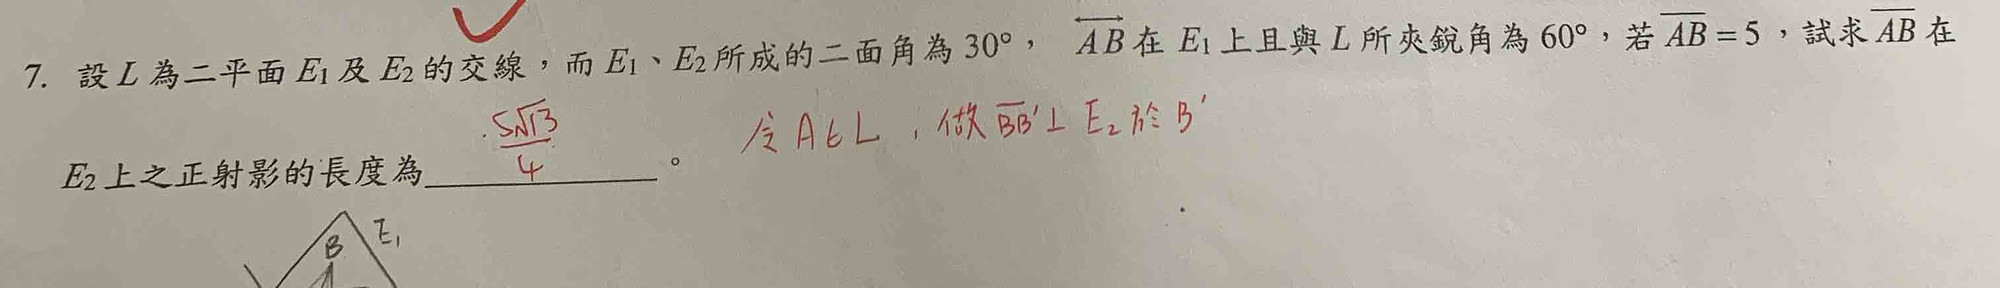 7. 設 L 為二平面 E₁ 及 E₂ 的交線，而 E₁、E₂ 所成的二面角為 30°， \overleftrightarrow{AB} 在 E₁ 上且與 L 所夾銳角為 60°，若 \overline{AB} = 5，試求 \overline{AB} 在
E₂ 上之正射影的長度為 5√13/4 。
令 A∈L，做 \overline{BB'} ⊥ E₂ 於 B'
B E₁